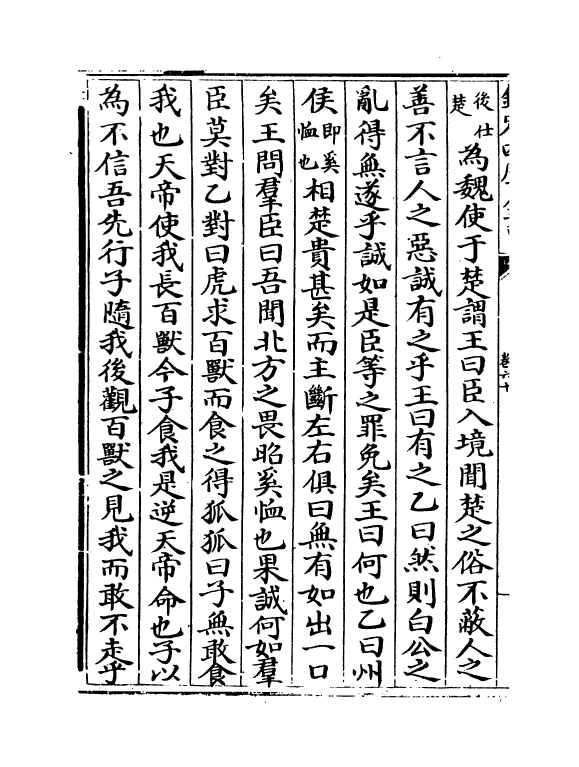 卷六十
後仕楚為魏使于楚謂王曰臣入境聞楚之俗不蔽人之
善不言人之惡誠有之乎王曰有之乙曰然則白公之
亂得無遂乎誠如是臣等之罪免矣王曰何也乙曰州
侯即奚恤也相楚貴甚矣而主斷左右俱曰無有如出一口
矣王問羣臣曰吾聞北方之畏昭奚恤也果誠何如羣
臣莫對乙對曰虎求百獸而食之得狐狐曰子無敢食
我也天帝使我長百獸今子食我是逆天帝命也子以
為不信吾先行子隨我後觀百獸之見我而敢不走乎